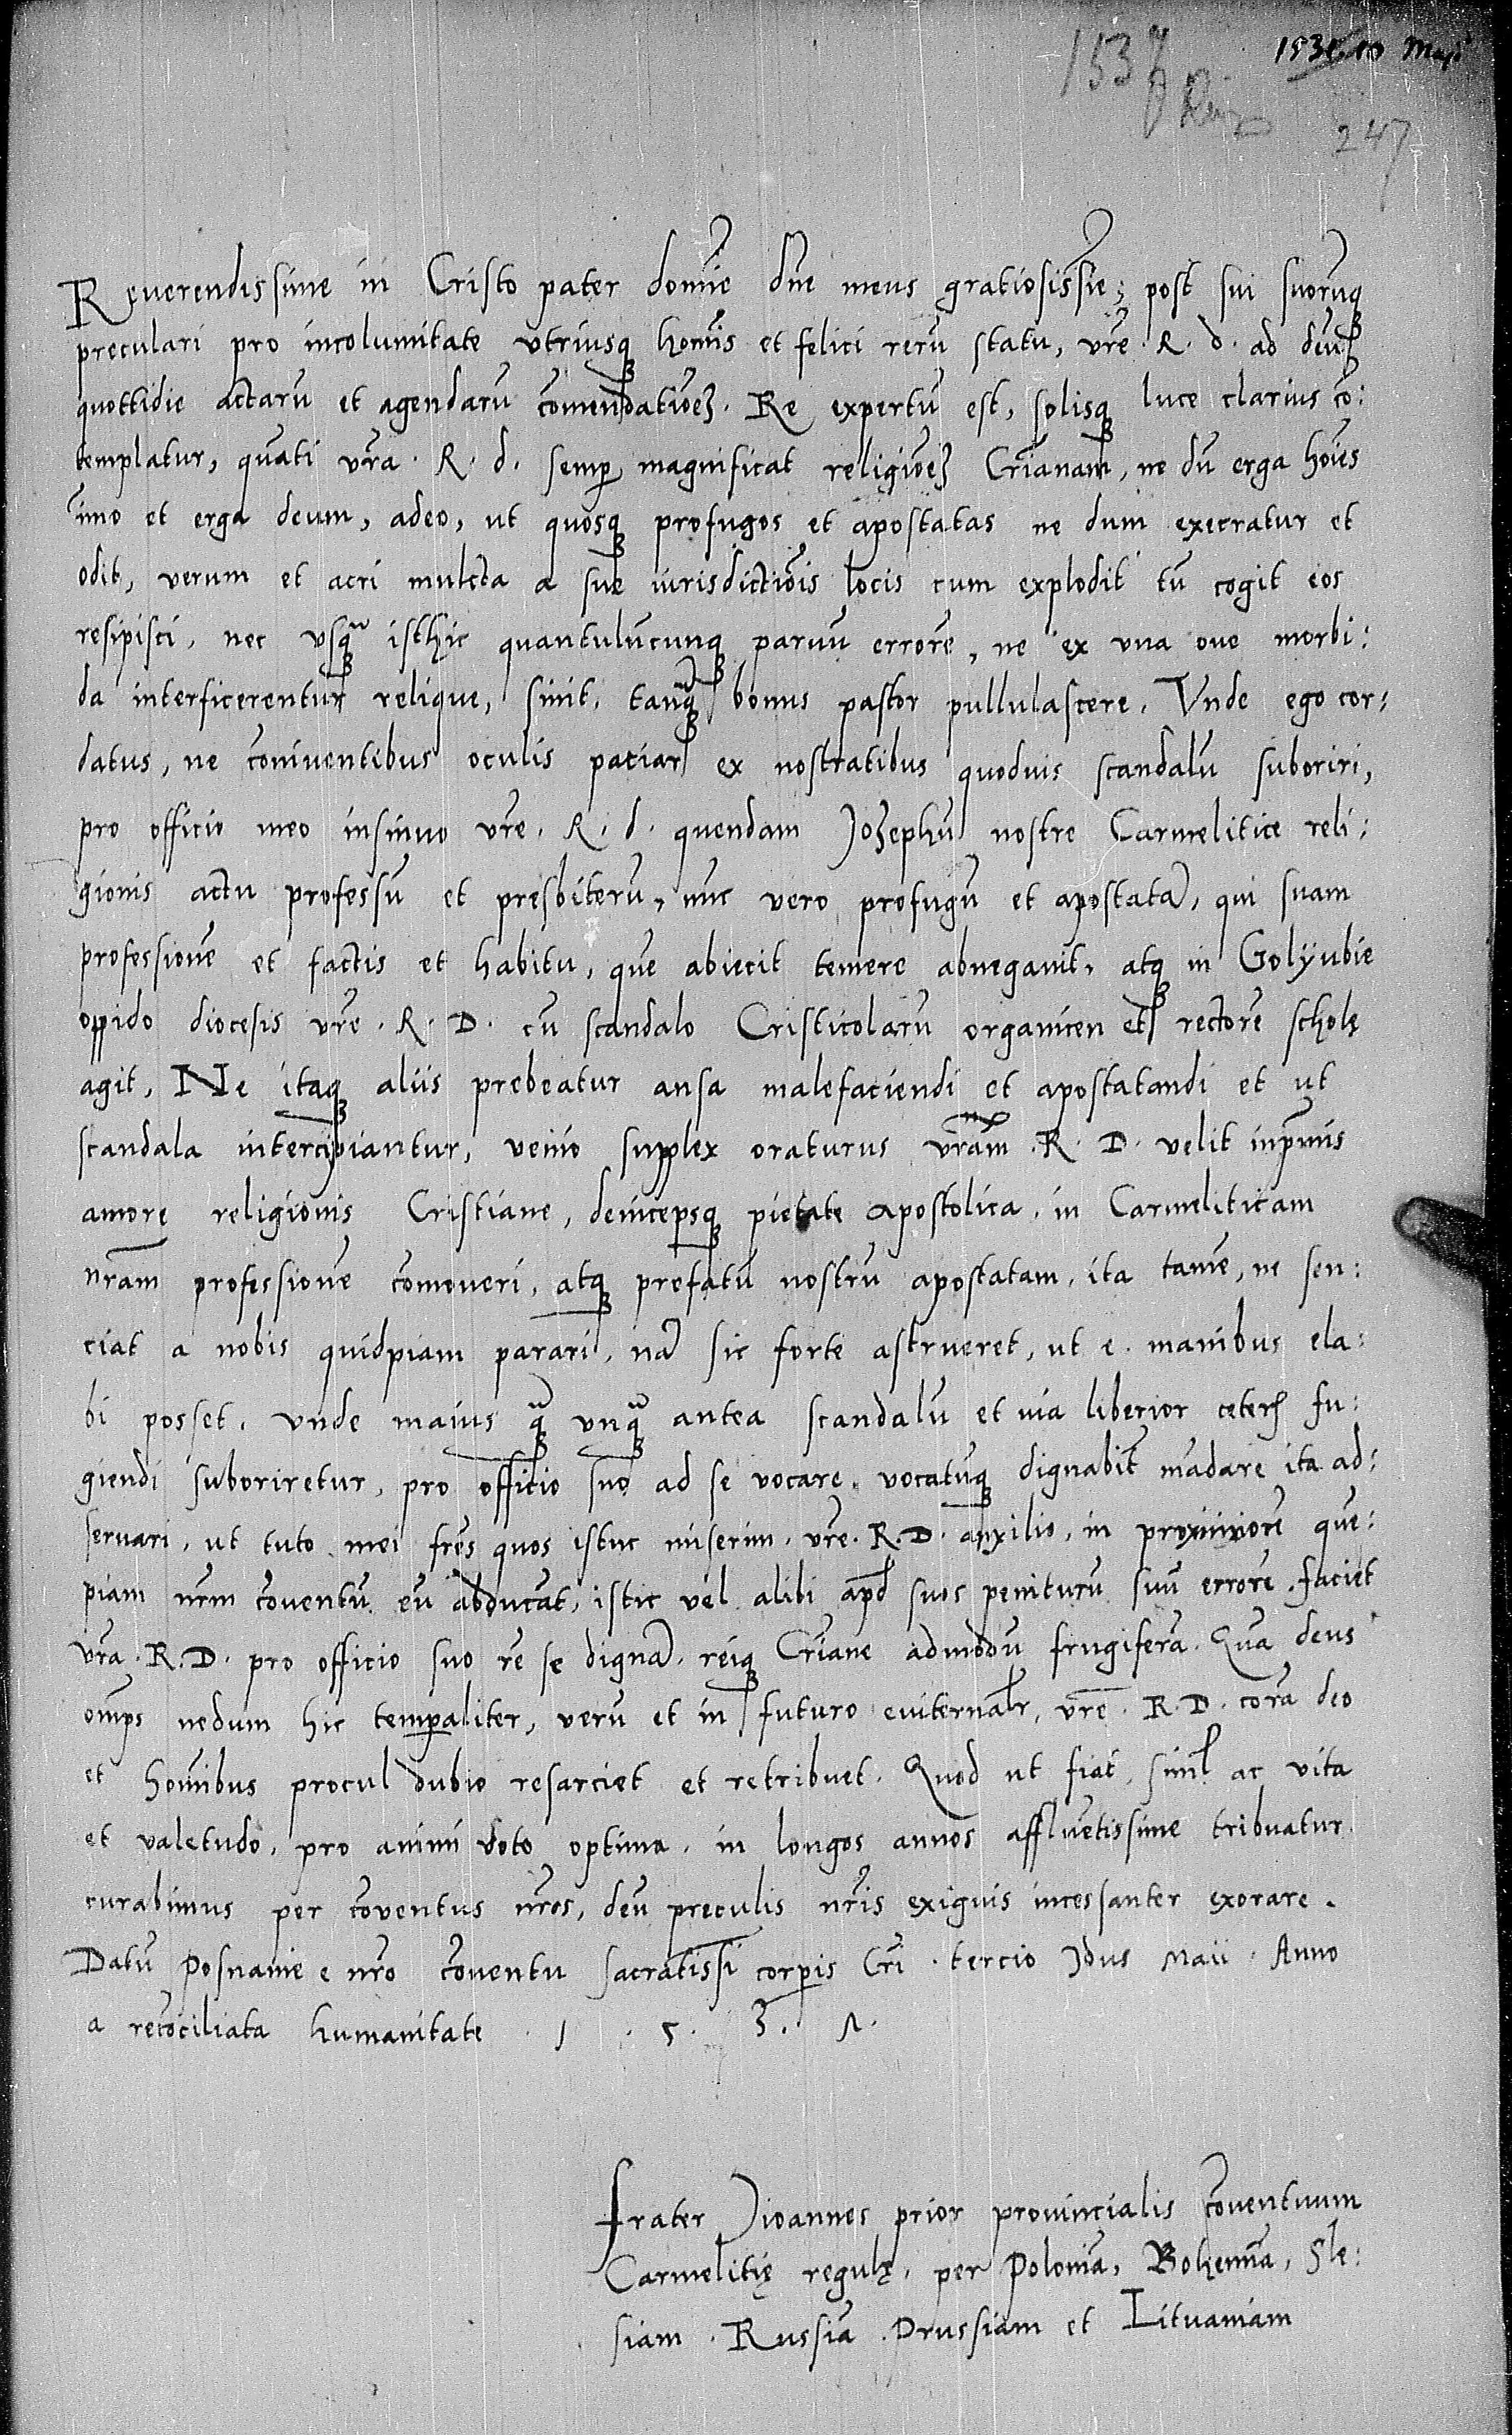 1531. 10 Maji
1537
247
Reuerendissime in Cristo pater domīe dn̄e meus gratiosissīe; post sui suorūq
preculari pro incolumitate vtriusq homīs et felici rerū statu, vr̄e. R. d. ad deū
quottidie actarū et agendarū cōmendatiōeʒ. Re expertū est, solisq luce clarius cō:
templatur, quāti vr̄a. R. d. semp magnificat religiōeʒ Cr̄ianam, ne dū erga hoīes
imo et erga deum, adeo, ut quosq profugos et apostatas ne dum execratur et
odit, verum et acri mulcta a sue iurisdictiōis locis cum explodit tū cogit eos
resipisci, nec vsq̄ isthic quantulūcunq paruū errorē, ne ex vna oue morbi:
da interficerentur relique, sinit, tanq̄ bonus pastor pullulascere. Vnde ego cor:
datus, ne coniuentibus oculis patiar ex nostratibus quoduis scandalū suboriri,
pro officio meo insinuo vr̄e. R. d. quendam Jozephū nostre Carmelitice reli:
gionis actu professū et presbiterū, nūc vero profugū et apostatā, qui suam
professionē et factis et habitu, quē abiecit temere abnegauit, atq in Golyubie
oppido diocesis vr̄e. R. D. cū scandalo Cristicolarū organicen et rectorē scholę
agit, Ne itaq aliis prebeatur ansa malefaciendi et apostatandi et ut
scandala intercipiantur, venio supplex oraturus vr̄am. R. D. velit inprimis
amore religionis Cristiane, deincepsq pietate apostolica, in Carmeliticam
nr̄am professionē cōmoueri, atq prefatū nostrū apostatam, ita tamē, ne sen:
ciat a nobis quidpiam parari, nā sic forte astrueret, ut e. manibus ela:
bi posset. vnde maius q̄ vnq̄ antea scandalū et via liberior ceteris fu:
giendi suboriretur, pro officio suo ad se vocare, vocatūq dignabit̄ mādare ita ad:
seruari, ut tuto mei fr̄es quos istuc miserim. vr̄e. R. D. auxilio, in proximiorē quē:
piam nr̄m cōuentū eū abducāt, istic vel alibi apd suos peniturū suū errorē. faciet
vr̄a. R. D. pro officio suo rē se dignā, reiq Cr̄iane admodū frugiferā. Qua deus
omps nedum hic temporaliter, verū et in futuro euiternalr, vr̄e. R. D. corā deo
et homībus procul dubio resarciet et retribuet. Quod ut fiat, siml ac vita
et valetudo, pro animi voto optima, in longos annos affluētissime tribuatur.
curabimus per cōuentus nr̄os, deū preculis nr̄is exiguis incessanter exorare.
Datū Posnanie e nr̄o cōuentu sacratissi corpis Cr̄i. tercio Jdus Maii. Anno
a recōciliata humanitate. 1. 5. 3. 1.
frater Jioannes prior prouincialis cōuentuum
Carmelitię regulę, per Poloniā, Bohemiā, Sle:
siam. Russiā. Prussiam et Lituaniam